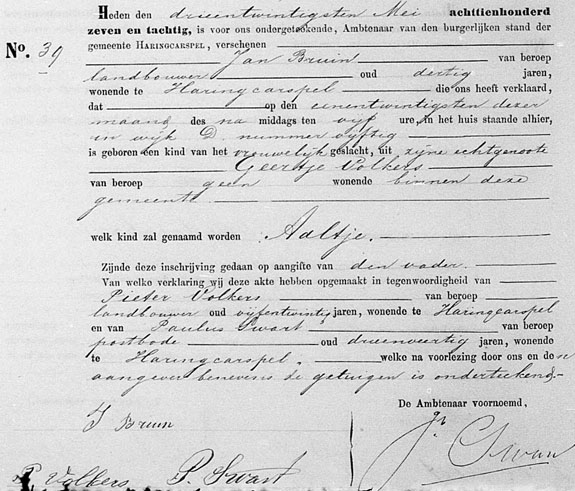 Heden den drieentwintigsten Mei achttienhonderd
zeven en tachtig, is voor ons ondergeteekende, Ambtenaar van den burgerlijken stand der
gemeente HARINGCARSPEL, verschenen
No. 39
Jan Bruin van beroep
landbouwer oud dertig jaren,
wonende te Haringcarspel die ons heeft verklaard,
dat op den eenentwintigsten dezer
maand des na middags ten vijf ure, in het huis staande alhier,
in wijk D nummer vijftig
is geboren een kind van het vrouwelijk geslacht, uit zijne echtgenoote
Geertje Volkers
van beroep geen wonende binnen deze
gemeente
welk kind zal genaamd worden Aaltje.
Zijnde deze inschrijving gedaan op aangifte van den vader.
Van welke verklaring wij deze akte hebben opgemaakt in tegenwoordigheid van
Pieter Volkers van beroep
landbouwer oud vijfentwintig jaren, wonende te Haringcarspel
en van Paulus Swart van beroep
postbode oud drieenveertig jaren, wonende
te Haringcarspel, welke na voorlezing door ons en den
aangever benevens de getuigen is onderteekend.
De Ambtenaar voornoemd,
J Bruin
P. Volkers P. Swart